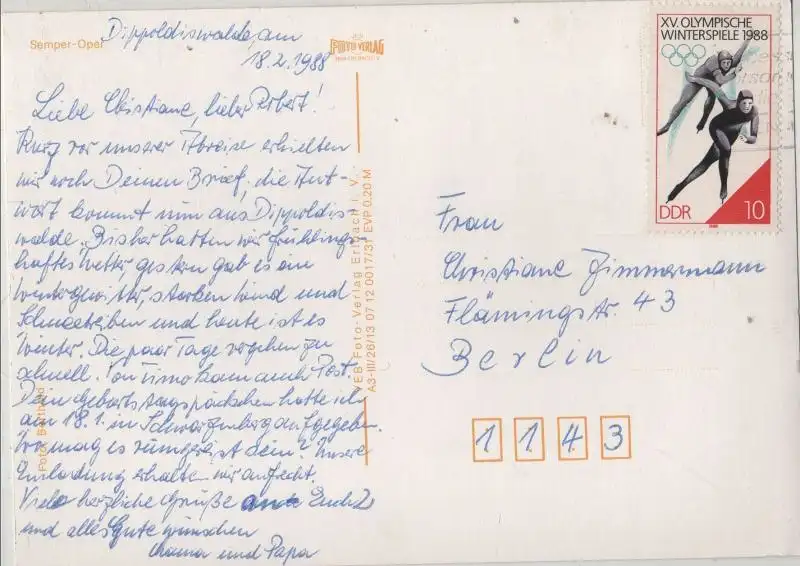 Semper-Oper
Dippoldiswalde, am
18.2.1988
FOTO VERLAG
XV. OLYMPISCHE
WINTERSPIELE 1988
DDR 10
Liebe Christiane, lieber !
Kurz vor unserer Abreise erhielten
wir noch Deinen Brief, die Ant-
wort kommt nun aus Dippoldis-
walde. Bisher hatten wir frühlings-
haftes Wetter gestern gab es ein
Wintergewitter, starken Wind und
Schneetreiben und heute ist es
Winter. Die paar Tage vergehen zu
schnell. Von Timo kam auch Post.
Dein Geburtstagspäckchen hatte ich
am 18.1. in Schwarzenberg aufgegeben.
Wo mag es rumgereist sein? Unsere
Einladung erhalten wir aufrecht.
Viele herzliche Grüße Euch 2
und alles Gute wünschen
Mama und Papa
Foto:
VEB Foto-Verlag Erlbach i. V.
A3-III/26/13 07 12 0017/31 EVP 0,20 M
Frau
Christiane Zimmermann
Flämingstr. 43
Berlin
1143